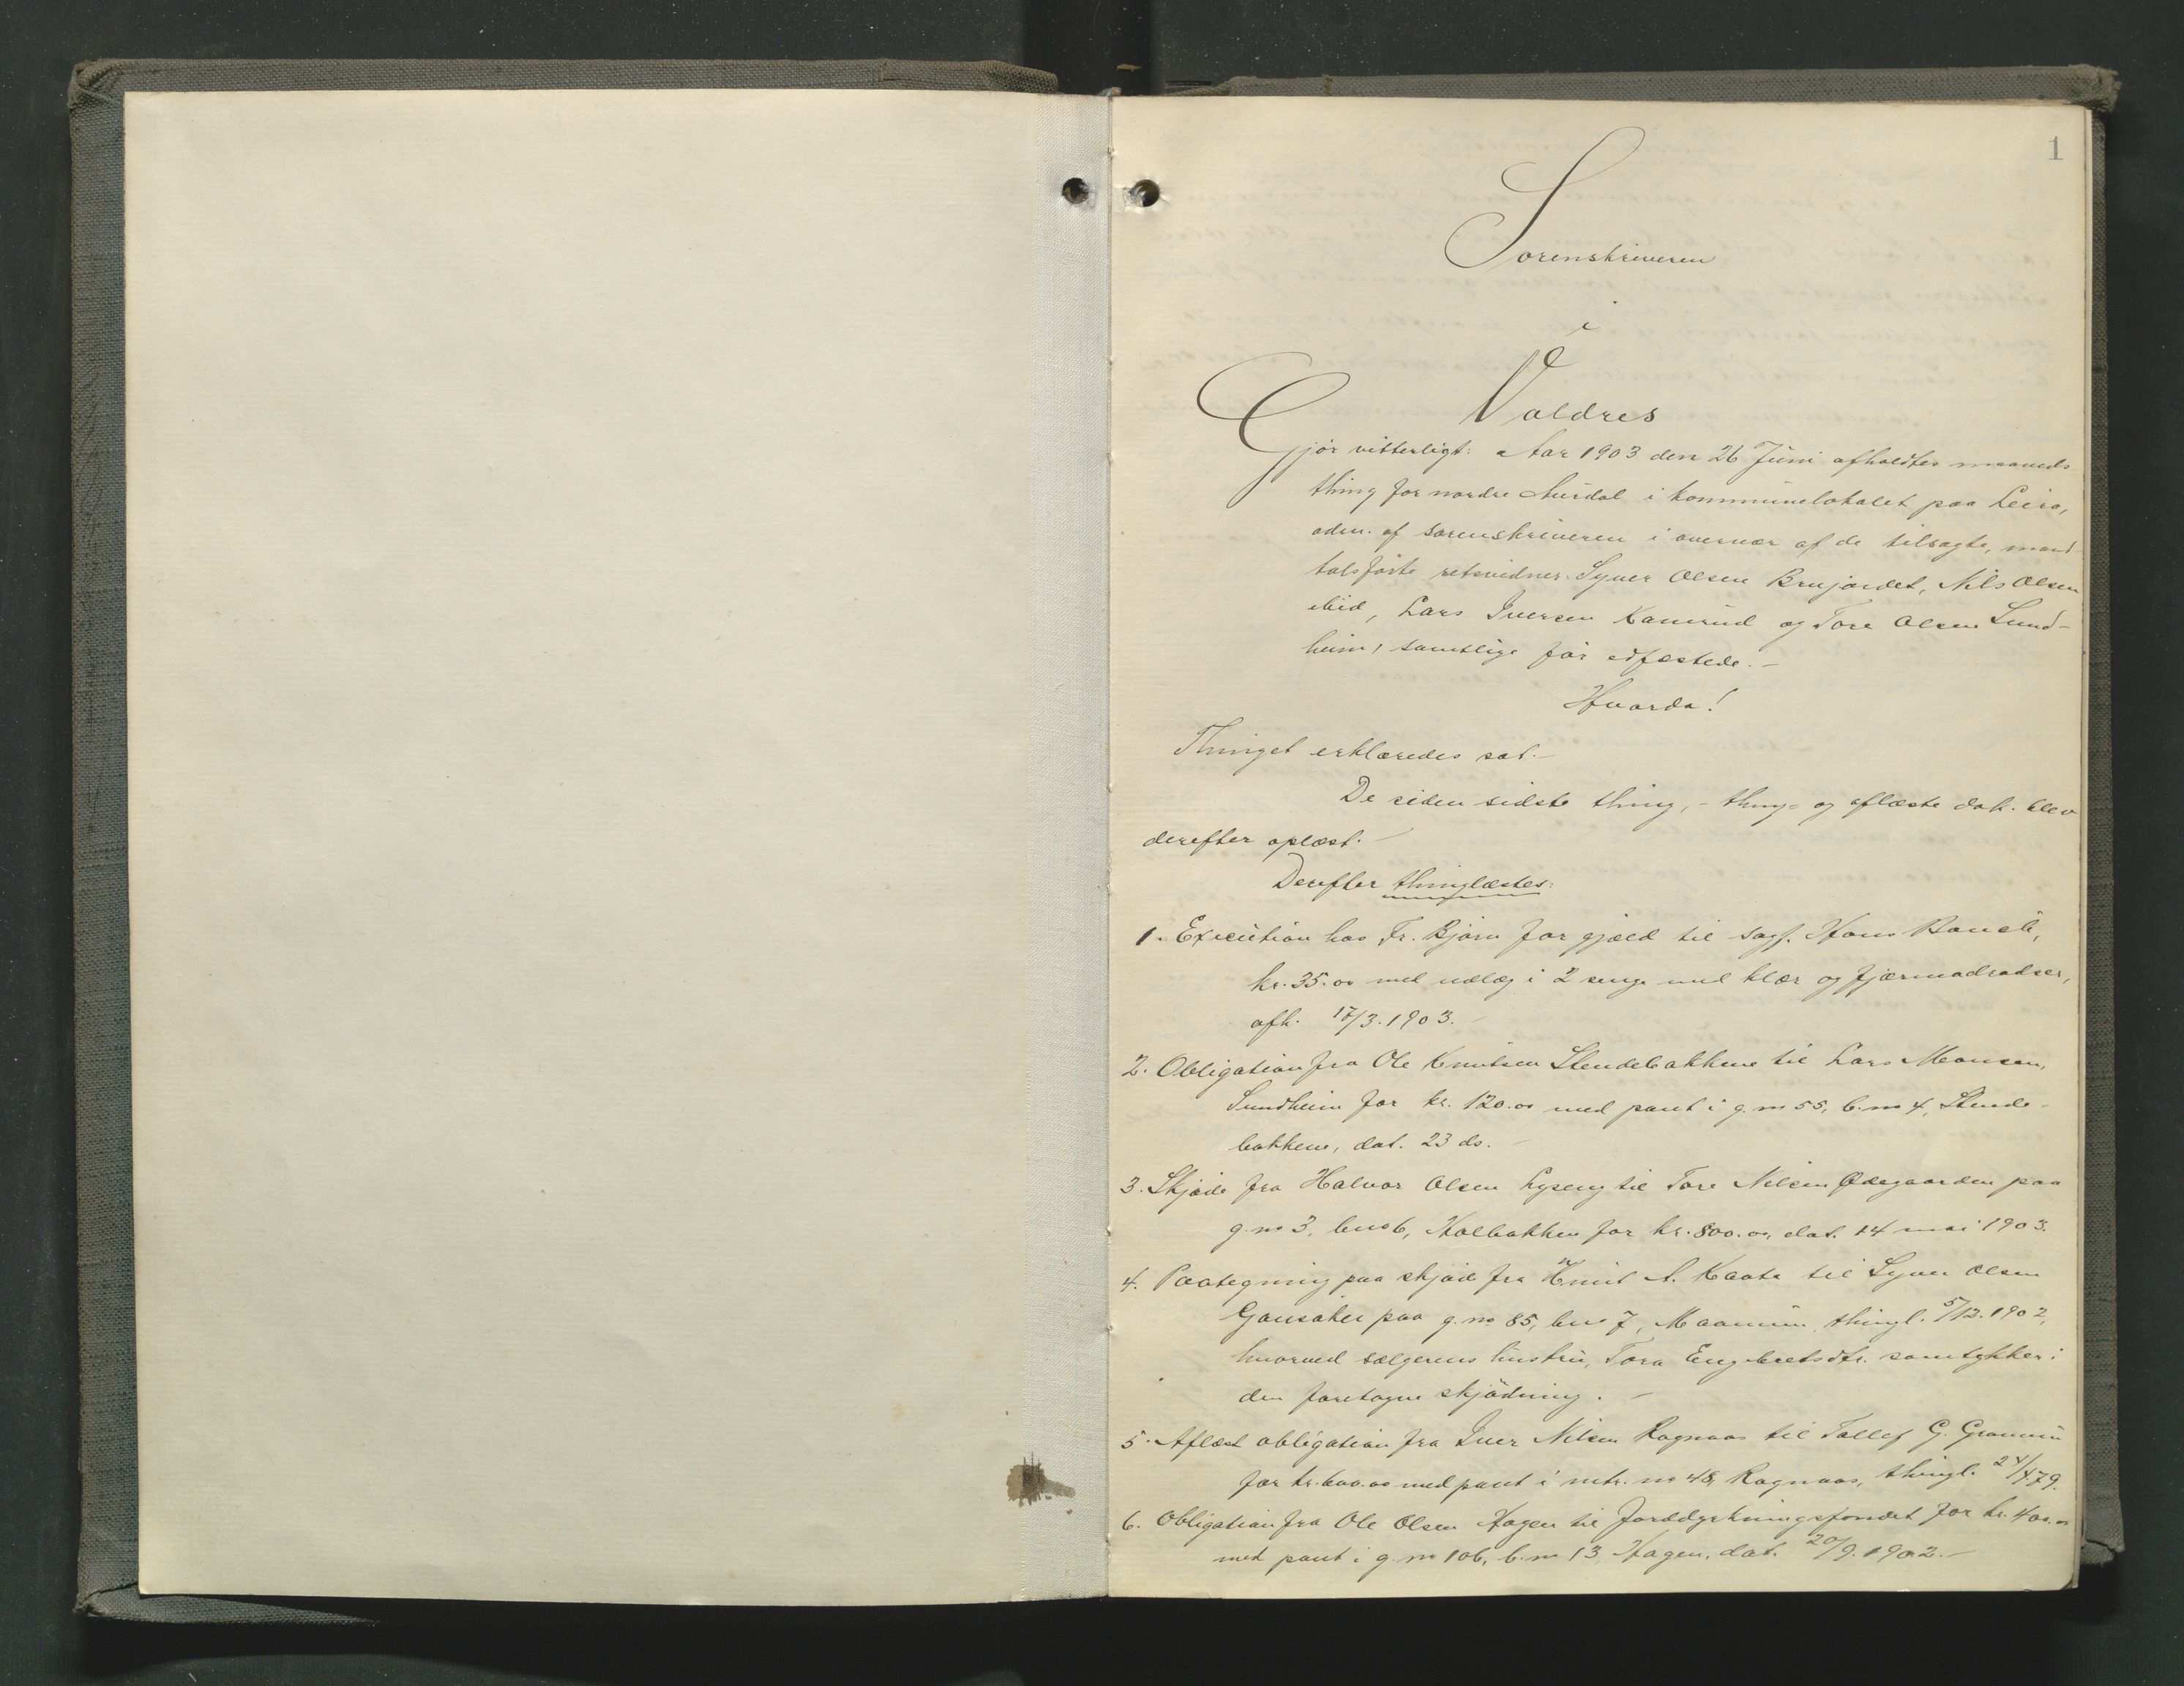 1
Sorenskriveren
i
Valdres
Gjör vitterligt: Aar 1903 den 26 Juni afholdtes maaneds
thing for nordre Aurdal i kommunelokalet paa Leira,
adm. af sorenskriveren i overvær af de tilsagte, mand
talsförte retsvidner. Syver Olsen Brujordet, Nils Olsen
ibid, Lars Iversen Kamrud og Tore Olsen Sund-
heim, samtlige för edfæstede.-
Hvorda!
Thinget erklæredes sat.-
De siden sidste thing, - thing- og aflæste dok. blev
derefter oplæst.-
Derefter thinglæstes:
1. Execution hos Fr. Björn for gjæld til sagf. Hans
kr. 35.00 med udlæg i 2 senge med klær og fjærmadradser,
afh. 17/3.1903.-
2. Obligation fra Ole Knutsen Stendebakkene til Lars Monsen,
Sundheim for kr. 120.00 med pant i g. no 55, b. no 4, Stende-
bakkene, dat. 23 ds.-
3. Skjöde fra Halvor Olsen Lyseng til Tore Nilsen Ödegaarden paa
g. no 3, b no 6, Kolbakken for kr. 800.00, dat. 14 mai 1903.
4. Paategning paa skjöde fra Knut A. Kaata til Syver Olsen
Gausaker paa g. no 85, b no 7, thingl. 5/12.1902,
hvorved sælgerens hustru, Tora Engebretsdtr. samtykker i
den foretagne skjödning.-
5. Aflæst obligation fra Iver Nilsen Ragnaas til Tollef G. Granum
for kr. 600.00 med pant i mtr. no 48, Ragnaas, thingl. 24/4.79.
6. Obligation fra Ole Olsen Hagen til Jorddyrkningsfondet for kr. 400.00
med pant i g. no 106, b. no 13 Hagen, dat. 20/9.1902.-